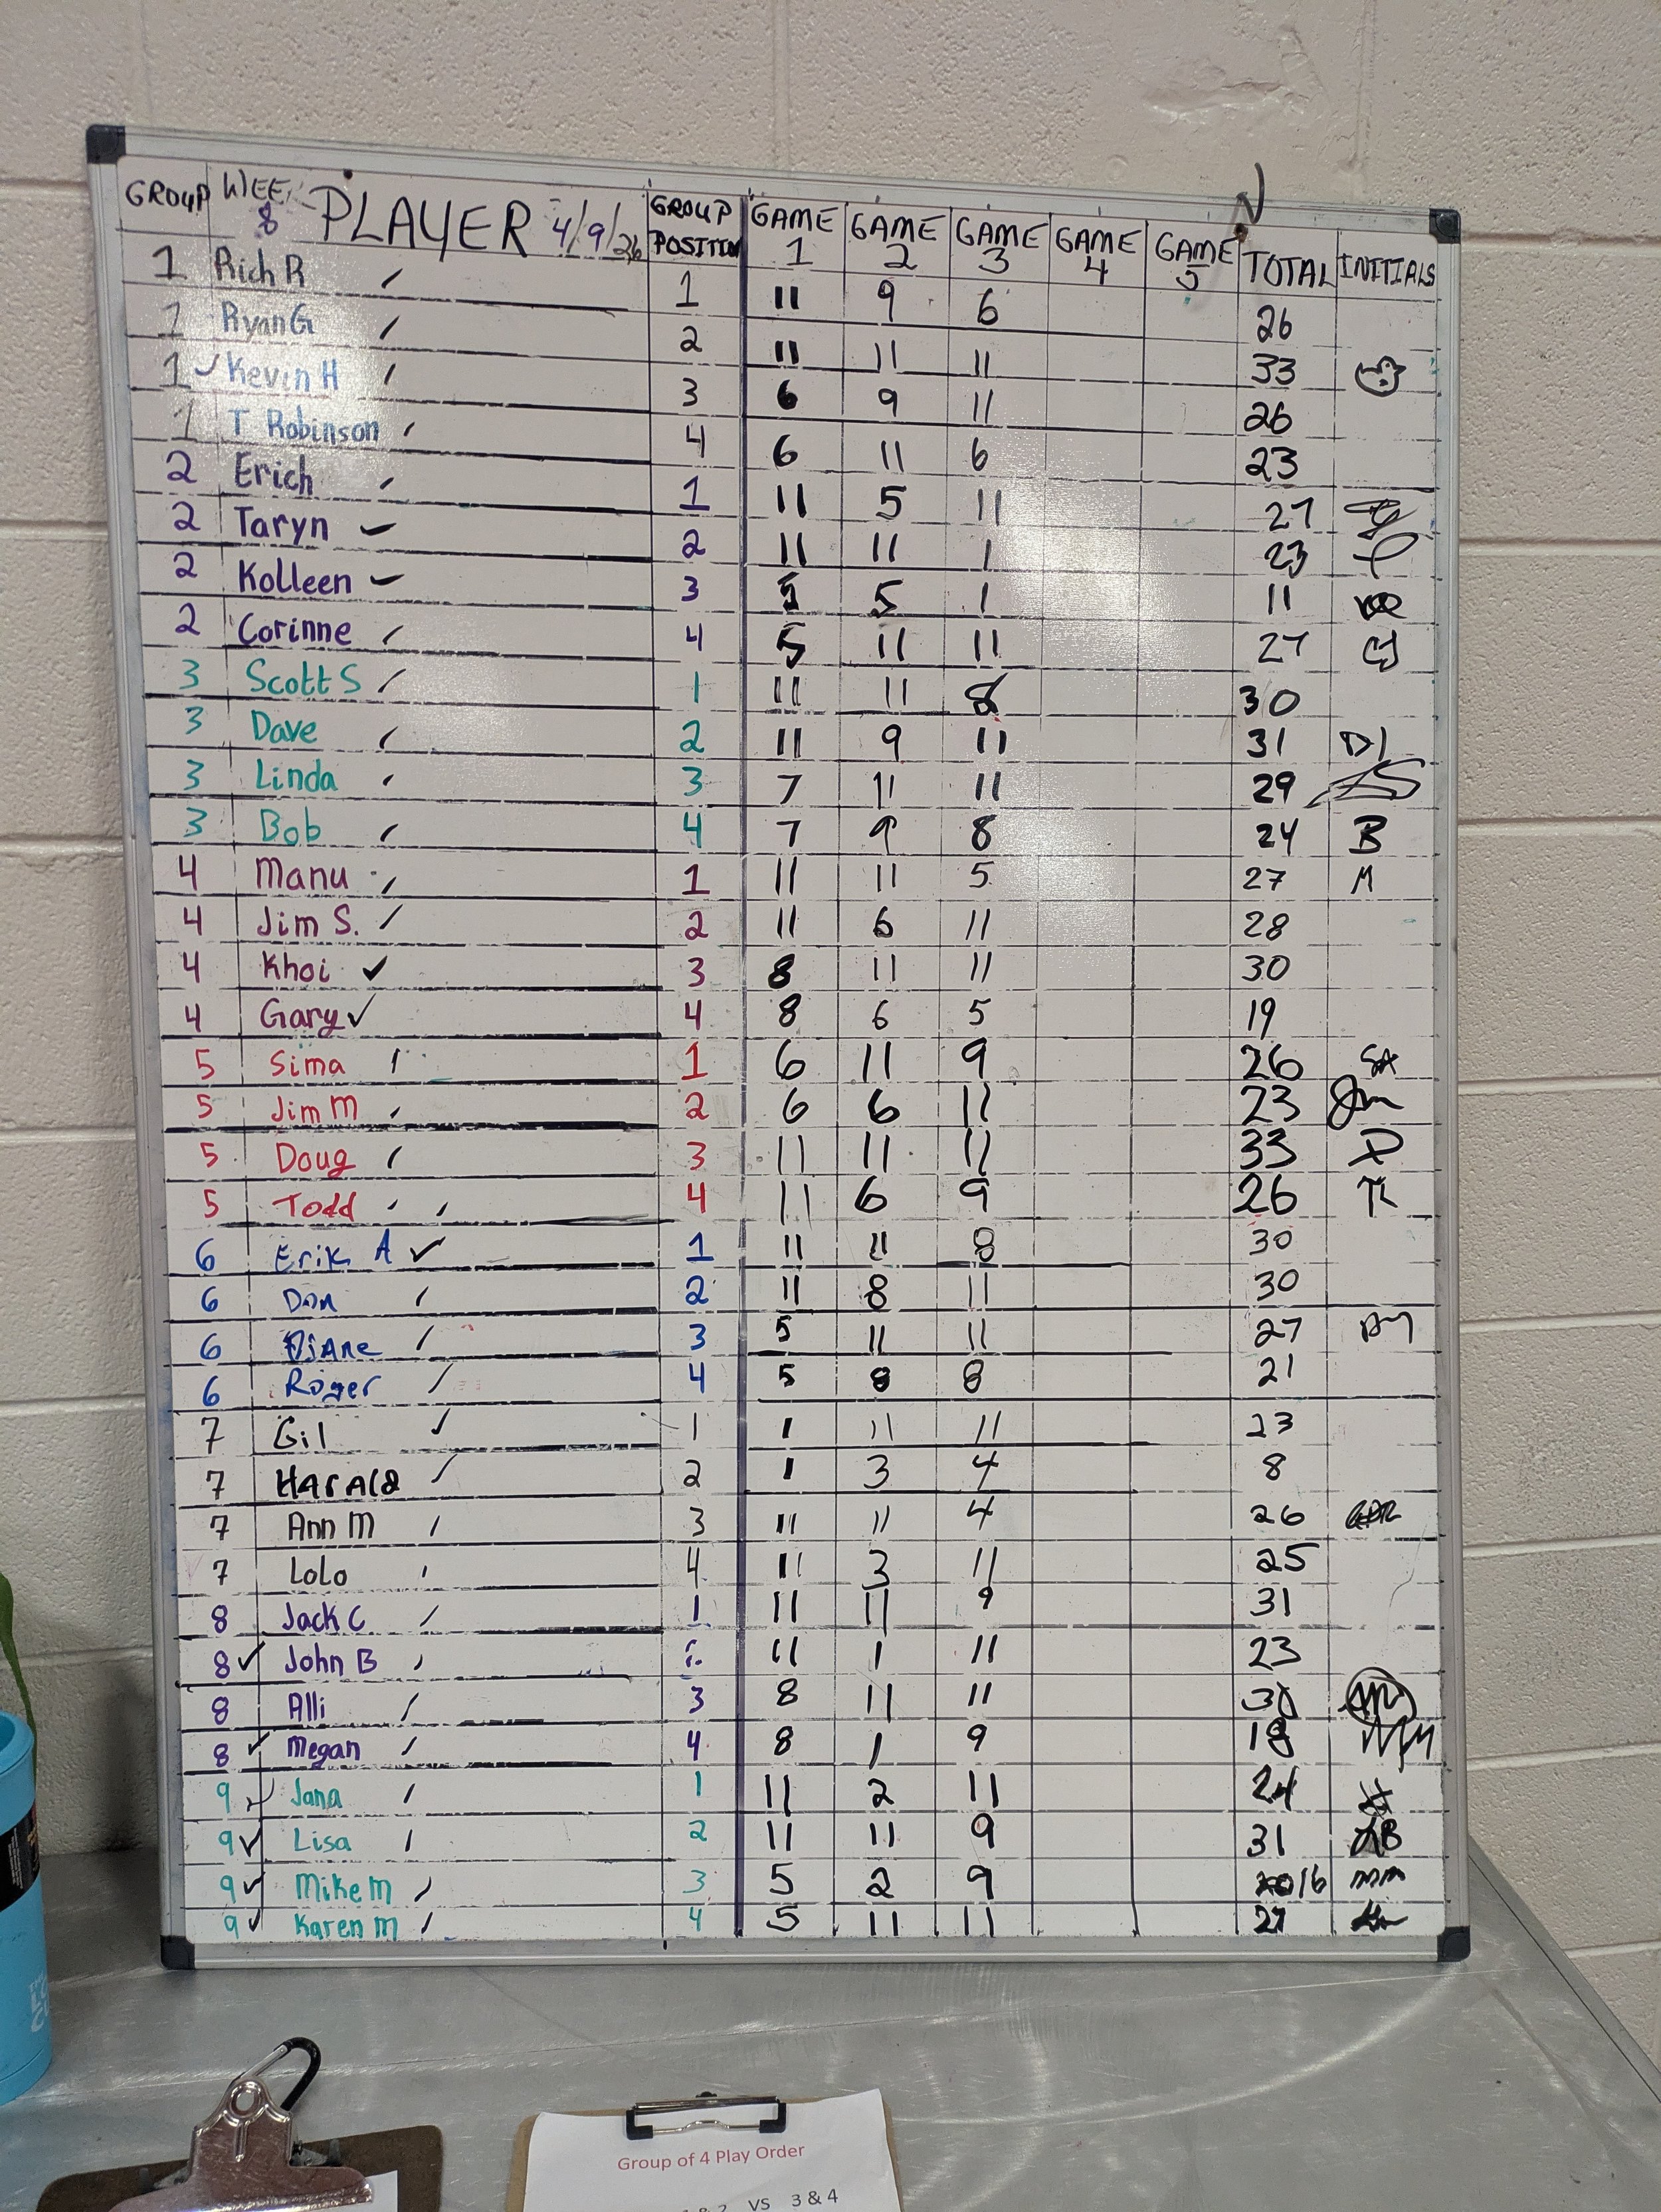 GROUP WEE 8 PLAYER 4/9/26 GROUP POSITION GAME 1 GAME 2 GAME 3 GAME 4 GAME 5 TOTAL INITIALS
1 Rich R 1 11 9 6 26
1 Ryan G 2 11 11 11 33
1 Kevin H 3 6 9 11 26
1 T Robinson 4 6 11 6 23
2 Erich 1 11 5 11 27
2 Taryn 2 11 11 1 23
2 Kolleen 3 5 5 1 11
2 Corinne 4 5 11 11 27 CJ
3 Scott S 1 11 11 8 30
3 Dave 2 11 9 11 31 DJ
3 Linda 3 7 11 11 29 LS
3 Bob 4 7 9 8 24 B
4 Manu 1 11 11 5 27 M
4 Jim S. 2 11 6 11 28
4 Khoi 3 8 11 11 30
4 Gary 4 8 6 5 19
5 Sima 1 6 11 9 26 SA
5 Jim M 2 6 6 11 23 Jm
5 Doug 3 11 11 11 33 D
5 Todd 4 11 6 9 26 TL
6 Erik A 1 11 11 8 30
6 Don 2 11 8 11 30
6 Diane 3 5 11 11 27
6 Roger 4 5 8 8 21
7 Gil 1 1 11 11 23
7 Harald 2 1 3 4 8
7 Ann M 3 11 11 4 26
7 LoLo 4 11 3 11 25
8 Jack C 1 11 11 9 31
8 John B 11 1 11 23
8 Alli 3 8 11 11 30
8 Megan 4 8 1 9 18 MM
9 Jana 1 11 2 11 24
9 Lisa 2 11 11 9 31 LB
9 Mike M 3 5 2 9 16 mm
9 Karen M 4 5 11 11 27
Group of 4 Play Order
1 & 2 VS 3 & 4